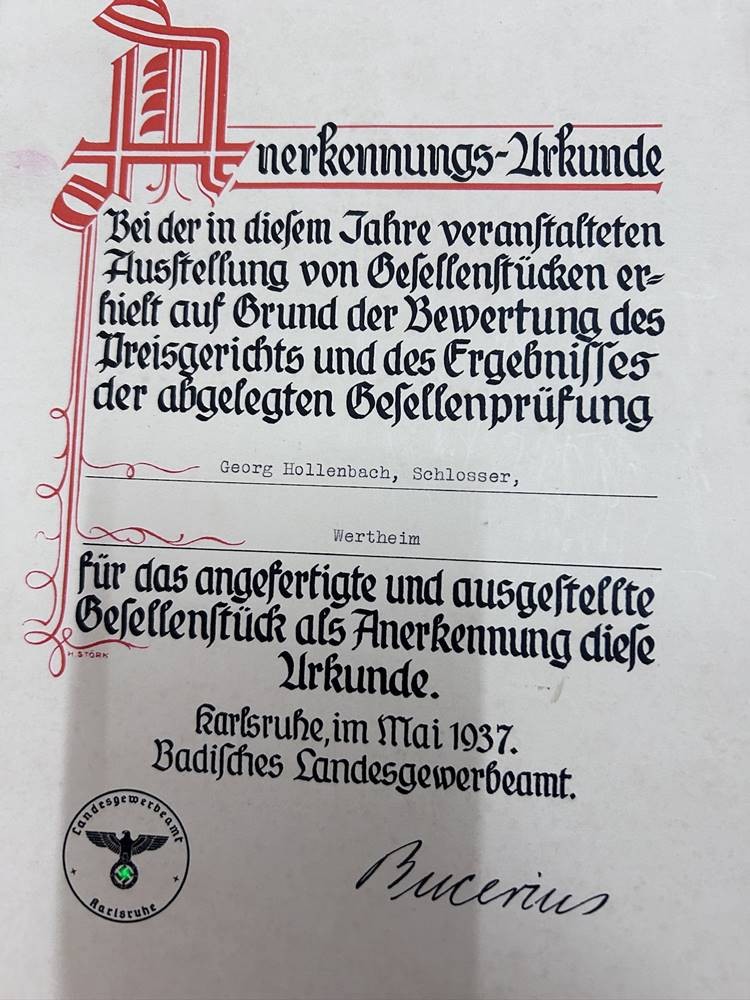 Anerkennungs-Urkunde
Bei der in dieſem Jahre veranſtalteten
Ausſtellung von Geſellenſtücken er-
hielt auf Grund der Bewertung des
Preisgerichts und des Ergebniſſes
der abgelegten Geſellenprüfung
Georg Hollenbach, Schlosser,
Wertheim
für das angefertigte und ausgeſtellte
Geſellenſtück als Anerkennung dieſe
Urkunde.
H. STÖRK
Karlsruhe, im Mai 1937.
Badiſches Landesgewerbeamt.
Landesgewerbeamt
Karlsruhe
Bucerius